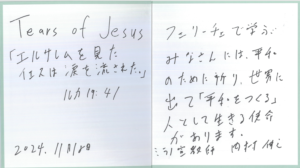 Tears of Jesus
「エルサレムを見た
イエスは涙を流された。」
ルカ19:41
2024. 11月18日
フェリーチェで学ぶ
みなさんには、平和
のために祈り、世界に
出て「平和をつくる」
人として生きる使命
があります。
宣教師 内村伸之